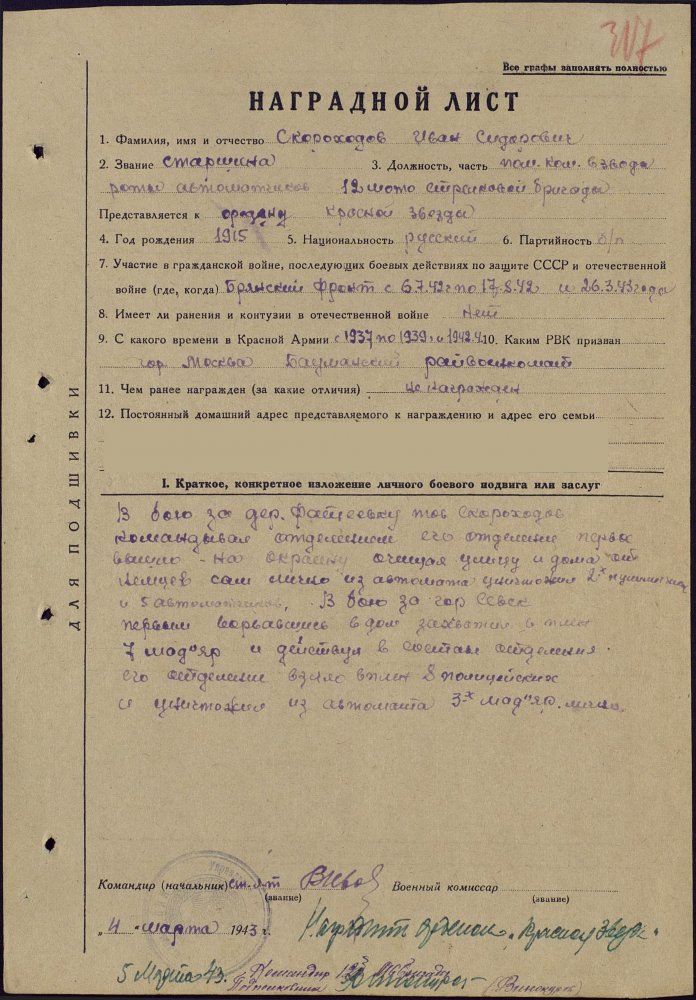 317
Все графы заполнять полностью
НАГРАДНОЙ ЛИСТ
1. Фамилия, имя и отчество Скороходов Иван Сидорович
2. Звание старшина 3. Должность, часть пом. ком. взвода
роты автоматчиков 12 мото стрелковой бригады
Представляется к ордену Красной Звезда
4. Год рождения 1915 5. Национальность русский 6. Партийность б/п
7. Участие в гражданской войне, последующих боевых действиях по защите СССР и отечественной
войне (где, когда) Брянский фронт с 6.7.42г по 17.8.42 и 26.3.43 года
8. Имеет ли ранения и контузии в отечественной войне нет
9. С какого времени в Красной Армии с 1937 по 1939 и 1942 г. 10. Каким РВК призван
гор. Москва Бауманский райвоенкомат
11. Чем ранее награжден (за какие отличия) не награжден
12. Постоянный домашний адрес представляемого к награждению и адрес его семьи
ДЛЯ ПОДШИВКИ
I. Краткое, конкретное изложение личного боевого подвига или заслуг
В бою за дер. тов Скороходов
командывал отделением его отделение первое
вышло на окраину очищая улицу и дома от
немцев сам лично из автомата уничтожил 2х
и 5 автоматчиков. В бою за гор Севск
первым ворвавшись в дом захватил в плен
7 мадъяр и действуя в составе отделения
его отделение взяло в плен 8 полицейских
и уничтожил из автомата 3-х мадъяр. лично.
Командир (начальник) ст. л-т Военный комиссар
(звание) (звание)
"4" марта 1943 г. Наградить орденом "Красная Звезда"
5 Марта 43. Командир 12 Бригады
Подполковник (Винокуров)